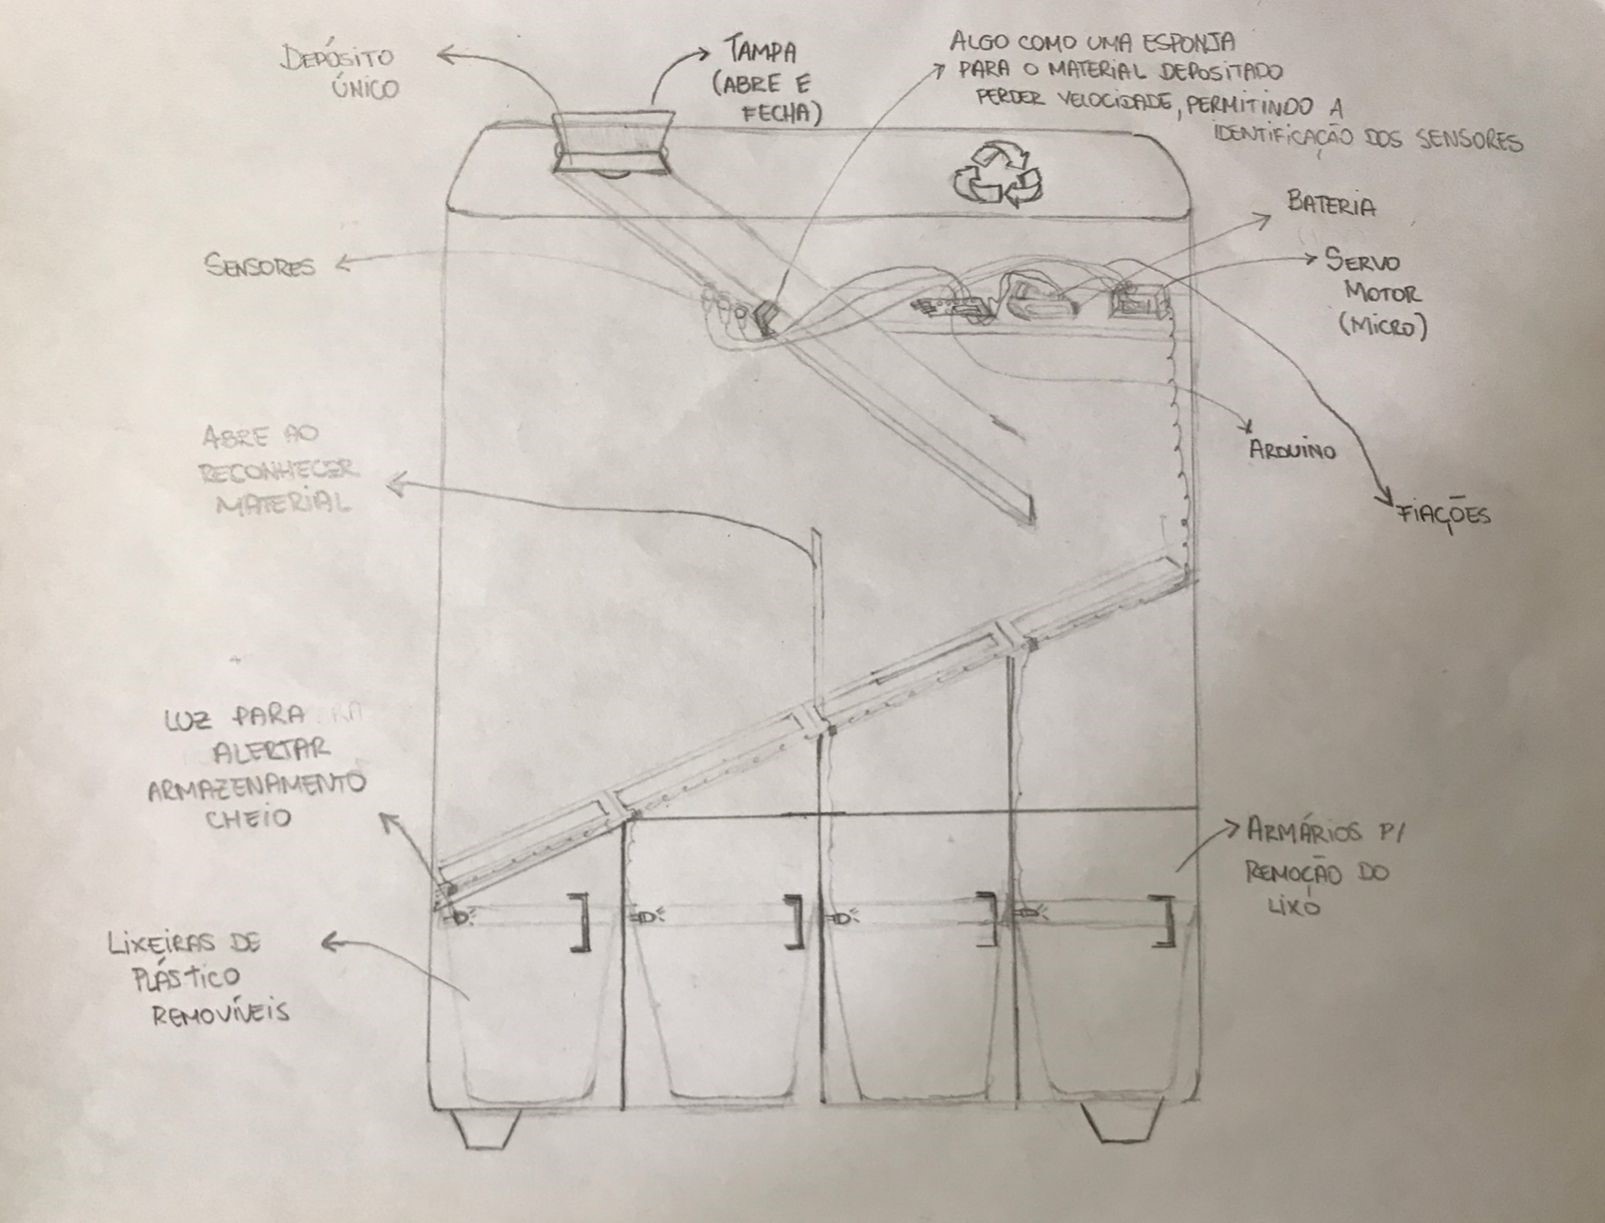 DEPÓSITO
ÚNICO
TAMPA
(ABRE E
FECHA)
ALGO COMO UMA ESPONJA
PARA O MATERIAL DEPOSITADO
PERDER VELOCIDADE, PERMITINDO A
IDENTIFICAÇÃO DOS SENSORES
BATERIA
SENSORES
SERVO
MOTOR
(MICRO)
ABRE AO
RECONHECER
MATERIAL
ARDUINO
FIAÇÕES
LUZ PARA
ALERTAR
ARMAZENAMENTO
CHEIO
ARMÁRIOS P/
REMOÇÃO DO
LIXO
LIXEIRAS DE
PLÁSTICO
REMOVÍVEIS